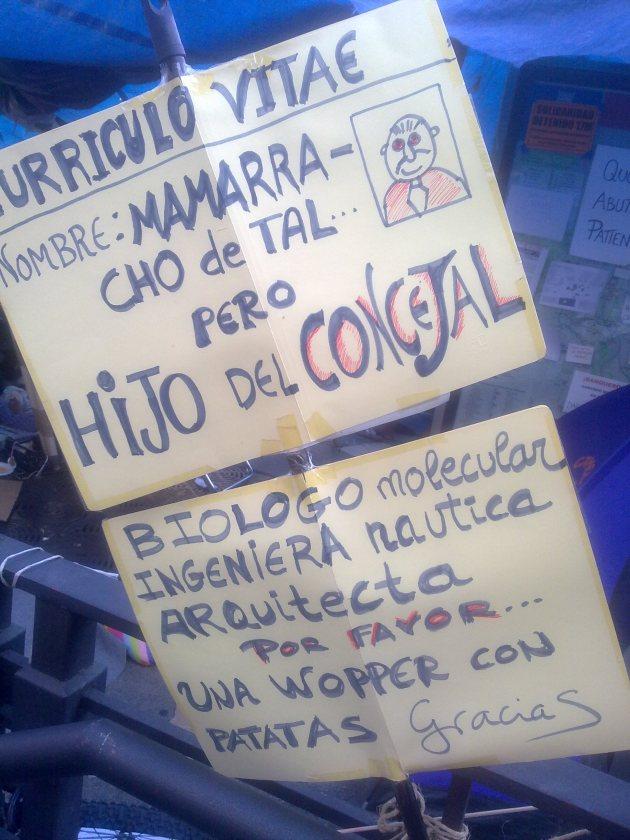 CURRICULO VITAE
NOMBRE: MAMARRA-
CHO de TAL...
PERO
HIJO DEL CONCEJAL
BIOLOGO molecular
INGENIERA nautica
ARQuitecta
POR FAVOR...
UNA WOPPER CON
PATATAS Gracias
SOLIDARIDAD
DETENIDO 17M